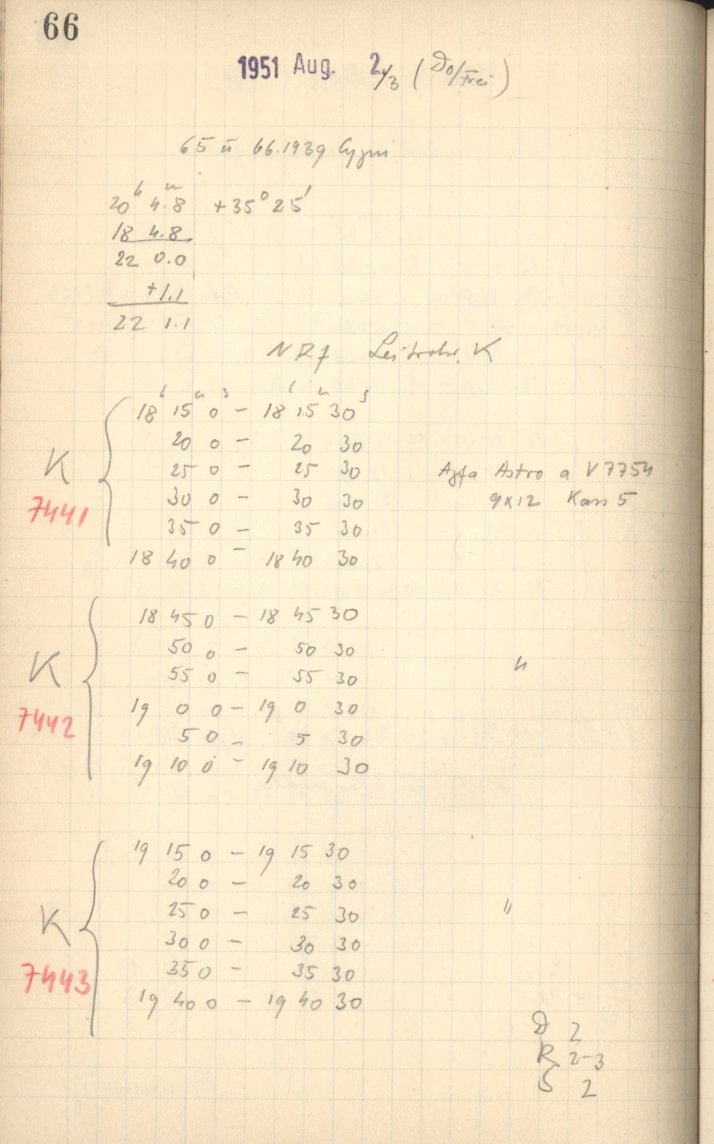 66
1951 Aug. 2/3 (Do/Frei)
65 u 66.1939 Cygni
20h 4.8m +35° 25'
18 4.8
22 0.0
+1.1
22 1.1
NR7 K
18h 15m 0s - 18h 15m 30s
20 0 - 20 30
25 0 - 25 30
K 30 0 - 30 30 Agfa Astro a V7754
7441 35 0 - 35 30 9x12 Kass 5
18 40 0 - 18 40 30
18 45 0 - 18 45 30
50 0 - 50 30
K 55 0 - 55 30 "
7442 19 0 0 - 19 0 30
5 0 - 5 30
19 10 0 - 19 10 30
19 15 0 - 19 15 30
20 0 - 20 30
K 25 0 - 25 30 "
7443 30 0 - 30 30
35 0 - 35 30
19 40 0 - 19 40 30
D 2
R 2-3
S 2